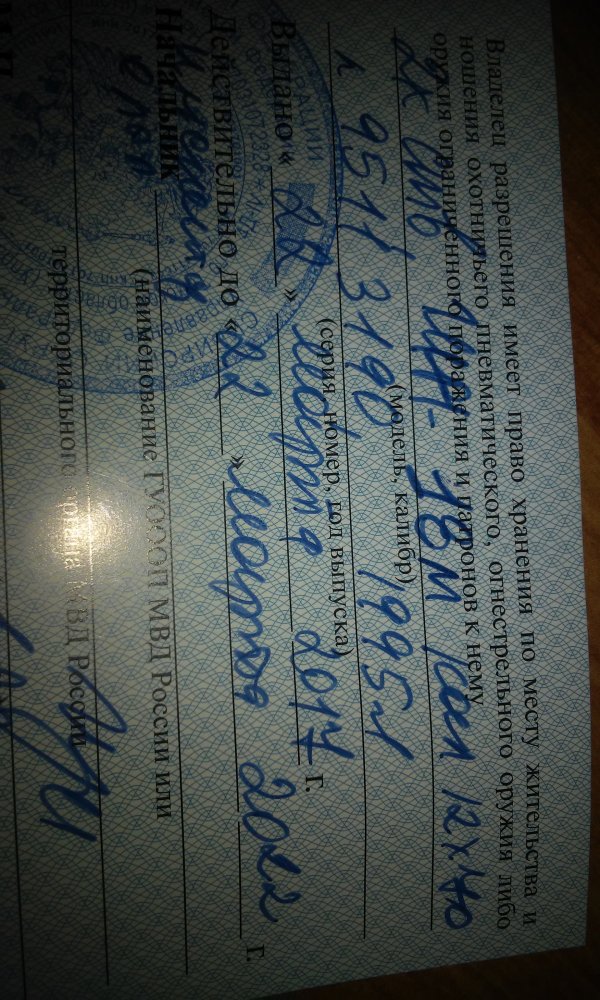 Владелец разрешения имеет право хранения по месту жительства и
ношения охотничьего пневматического, огнестрельного оружия либо
оружия ограниченного поражения и патронов к нему
ИЖ-18М кал 12х70
(модель, калибр)
9511 3190 1995
(серия, номер, год выпуска)
Выдано «22» марта 2017 г.
Действительно до «22» марта 2022 г.
Начальник
(наименование ГУОООП МВД России или
территориального органа МВД России